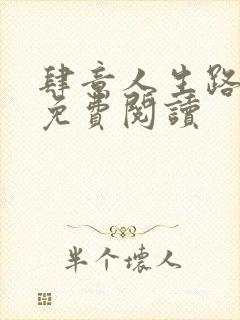 肆意人生路
免費閱讀
半个壞人